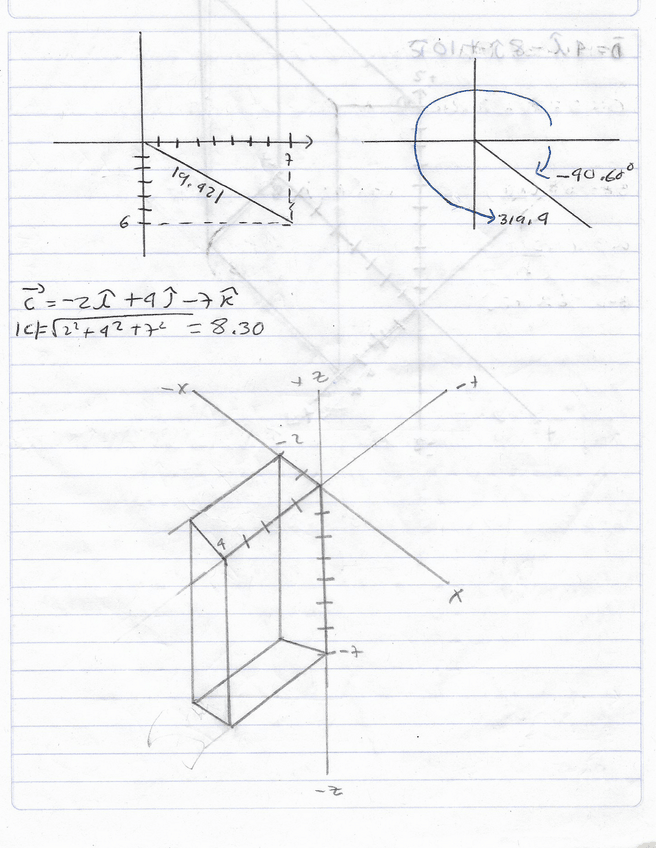 7
19.421
6
-40.60°
319.4
c⃗ = -2î + 4ĵ - 7k̂
|c| = √2² + 4² + 7² = 8.30
-x
+z
-y
-2
4
x
-7
-z